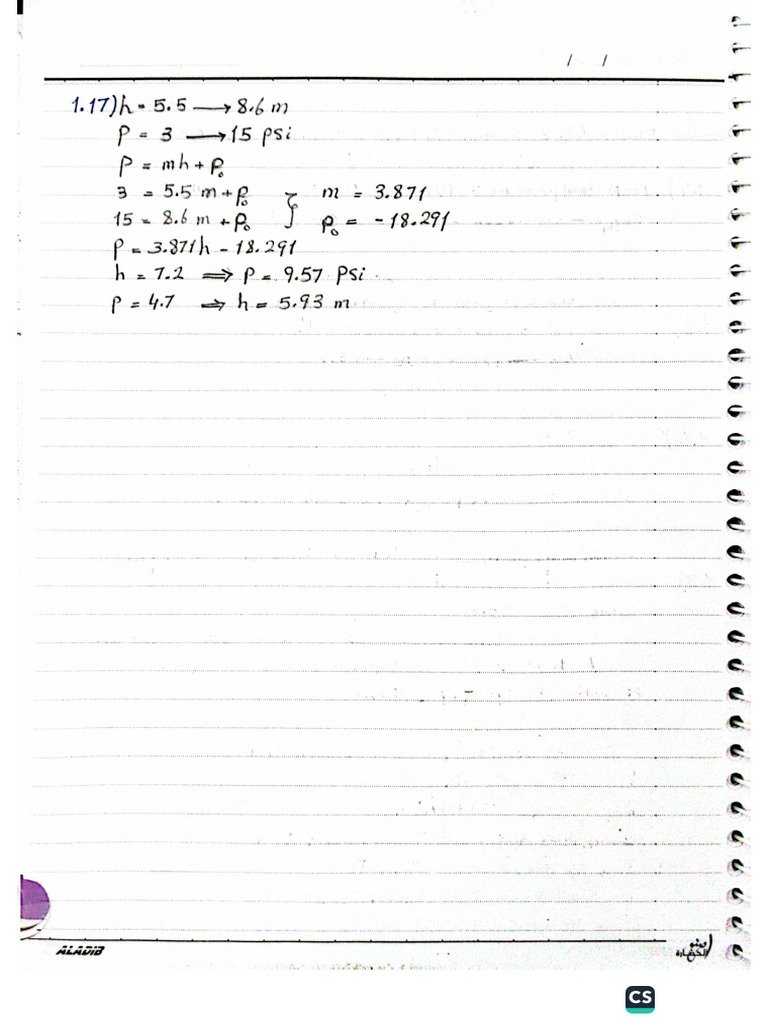 / /
1.17) h = 5.5 → 8.6 m
P = 3 → 15 psi
P = mh + P₀
3 = 5.5 m + P₀ } m = 3.871
15 = 8.6 m + P₀ P₀ = -18.291
P = 3.871h - 18.291
h = 7.2 ⇒ P = 9.57 Psi.
P = 4.7 ⇒ h = 5.93 m
ALADIB
CS